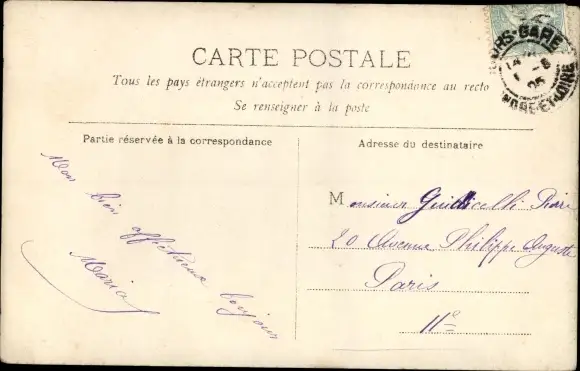 CARTE POSTALE
Tous les pays étrangers n'acceptent pas la correspondance au recto
Se renseigner à la poste
Partie réservée à la correspondance
Adresse du destinataire
Mon bien affectueux bonjour
Maria
Monsieur Guillicelli Pierre
20 Avenue Philippe Auguste
Paris
11e
TOURS-GARE
INDRE-ET-LOIRE